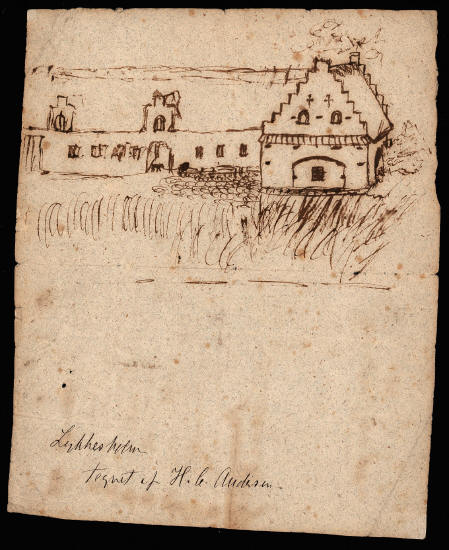 Lykkesholm
tegnet af H. C. Andersen